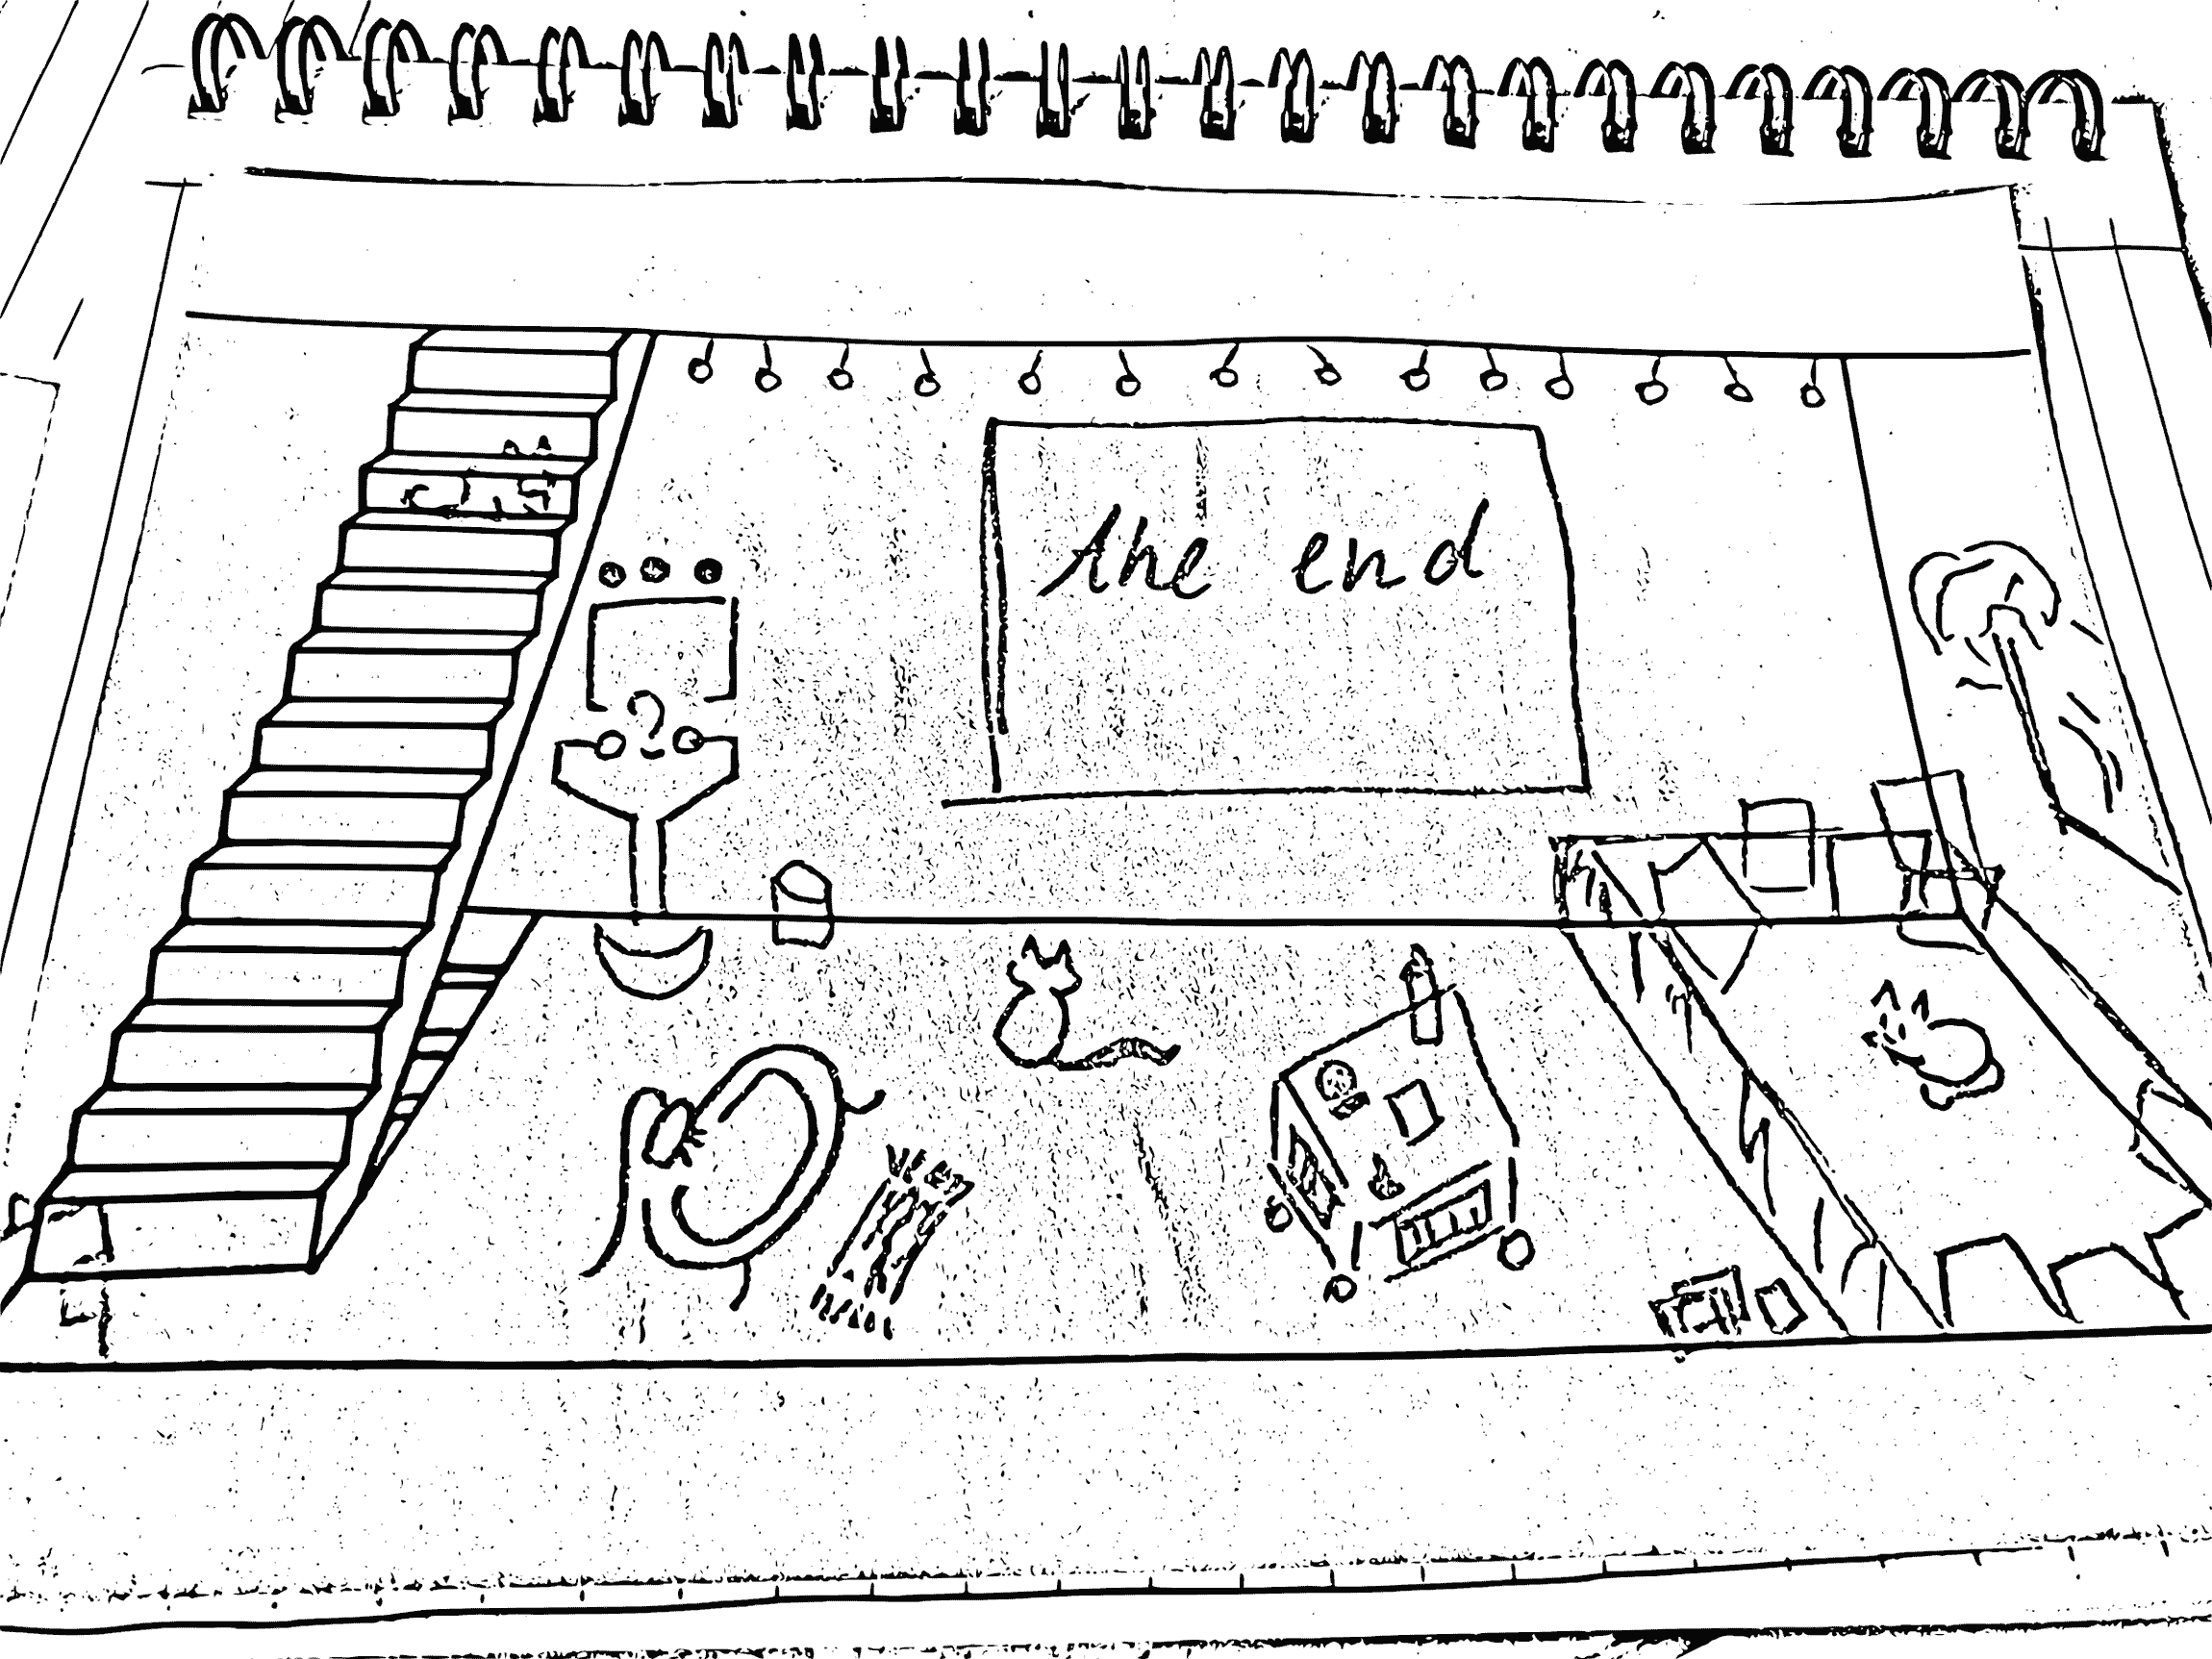 the end